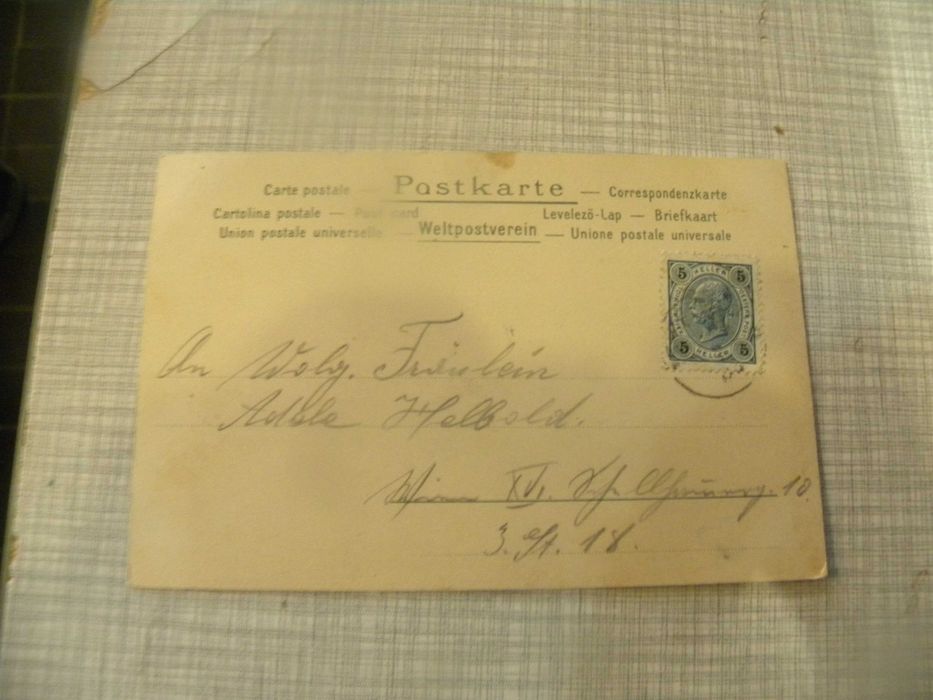 Carte postale — Postkarte — Correspondenzkarte
Cartolina postale — Post card Levelező-Lap — Briefkaart
Union postale universelle Weltpostverein — Unione postale universale
5 HELLER 5
5 HELLER 5
An Wolg. Fräulein
Adele Helbold.
Wien XVI. 10.
3. St. 18.